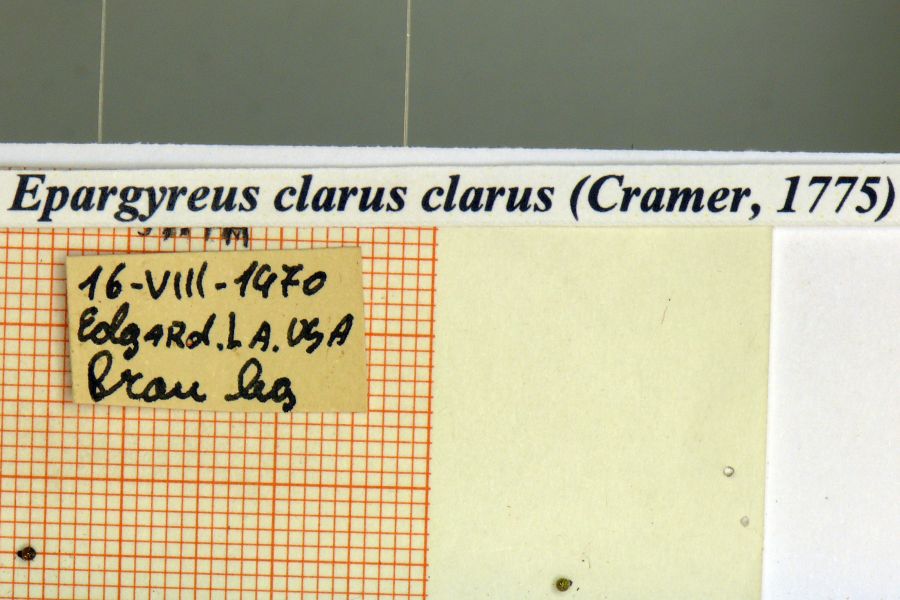 Epargyreus clarus clarus (Cramer, 1775)
16-VIII-1970
Edgard. LA. USA
Brou leg